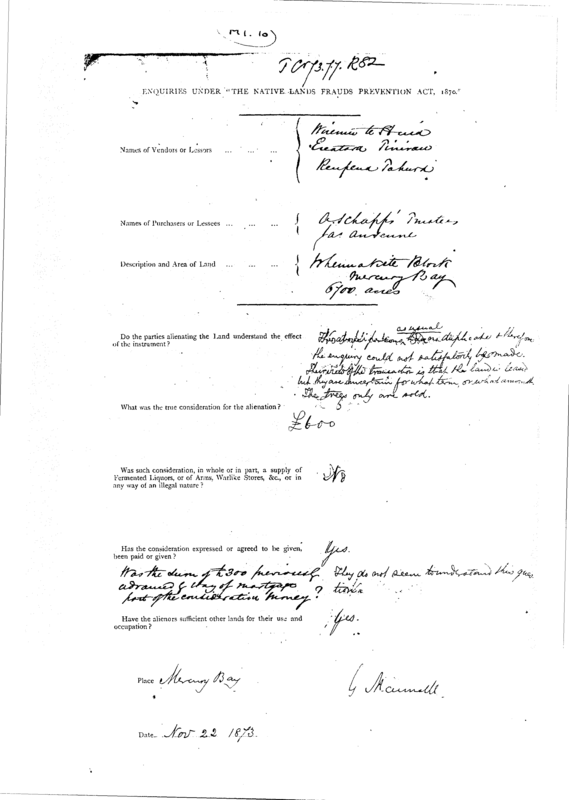 M1. 10
T Cr 73.77. R82
ENQUIRIES UNDER "THE NATIVE LANDS FRAUDS PREVENTION ACT, 1870."
Names of Vendors or Lessors ... ... ...
Wiremu te
Names of Purchasers or Lessees ... ... ...
Trustees
Description and Area of Land ... ... ...
Block
Mercury Bay
6700. acres
Do the parties alienating the Land understand the effect
of the instrument?
as usual
duplicate & therefore
the enquiry could not satisfactorily be made.
of the transaction is that the land is leased
but they are uncertain for what term, or what amount.
The trees only are sold.
What was the true consideration for the alienation?
£600
Was such consideration, in whole or in part, a supply of
Fermented Liquors, or of Arms, Warlike Stores, &c., or in
any way of an illegal nature?
No
Has the consideration expressed or agreed to be given,
been paid or given?
Yes.
Was the sum of £300 previously
advanced by way of mortgage
part of the consideration money?
They do not seem to understand this ques
tion
Have the alienors sufficient other lands for their use and
occupation?
Yes.
Place Mercury Bay
Date Nov 22 1873.